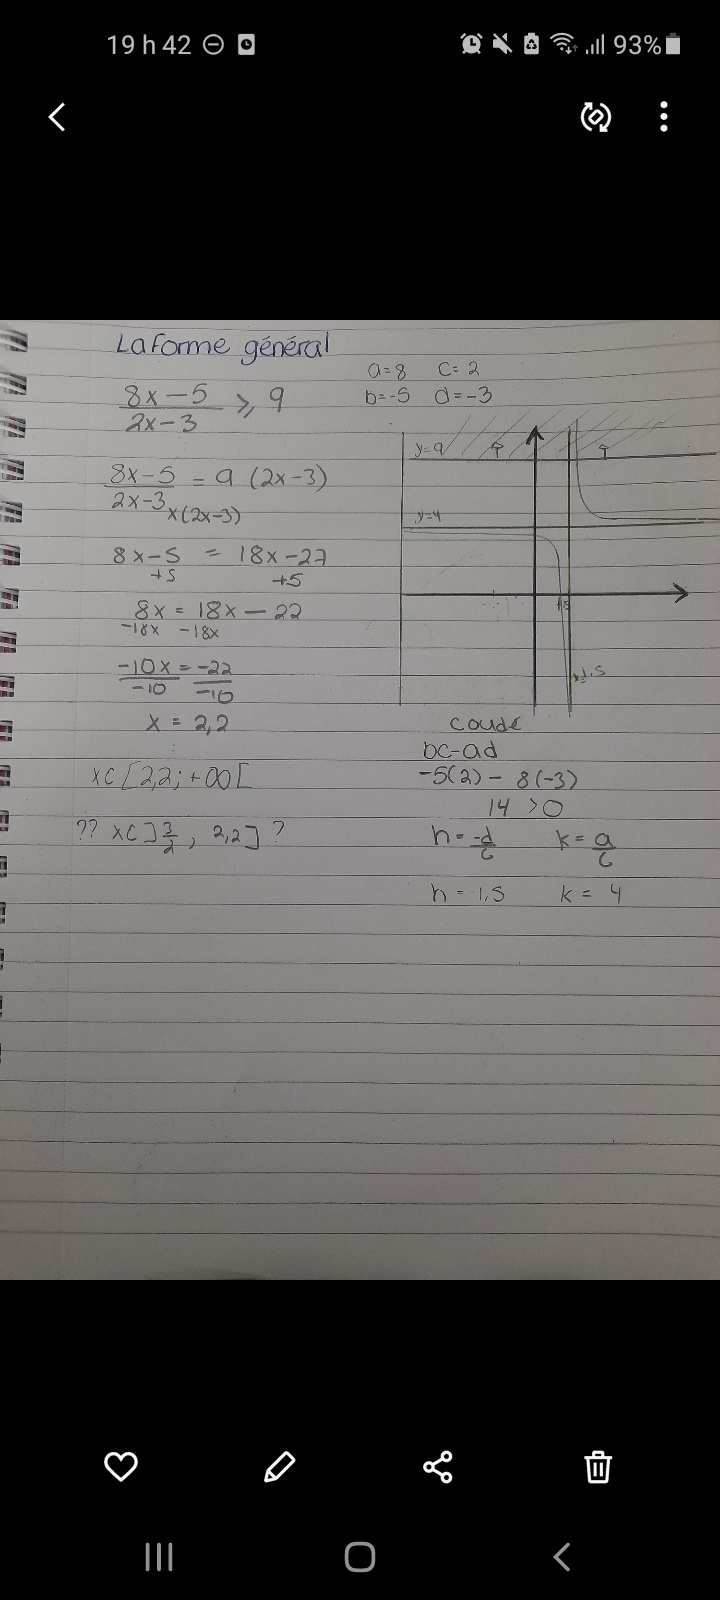 19 h 42 93%
La forme général
8x-5 / 2x-3 ⩾ 9
a=8 c=2
b=-5 d=-3
8x-5 / 2x-3 x(2x-3) = 9 (2x-3)
8x-5 = 18x-27
+5 +5
8x = 18x - 22
-18x -18x
-10x / -10 = -22 / -10
x = 2,2
x C [2,2; +∞[
?? x C ]3/2, 2,2] ?
y=9
y=4
1,5
x=1.5
coude
bc-ad
-5(2) - 8(-3)
14 >0
h = -d/c k = a/c
h = 1,5 k = 4